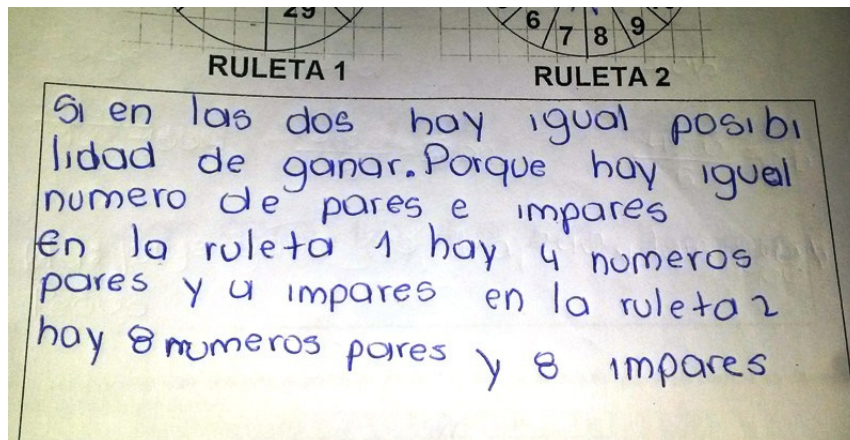 29
6 7 8 9
RULETA 1
RULETA 2
Si en las dos hay igual posibi
lidad de ganar. Porque hay igual
numero de pares e impares
en la ruleta 1 hay 4 numeros
pares y 4 impares en la ruleta 2
hay 8 numeros pares y 8 impares